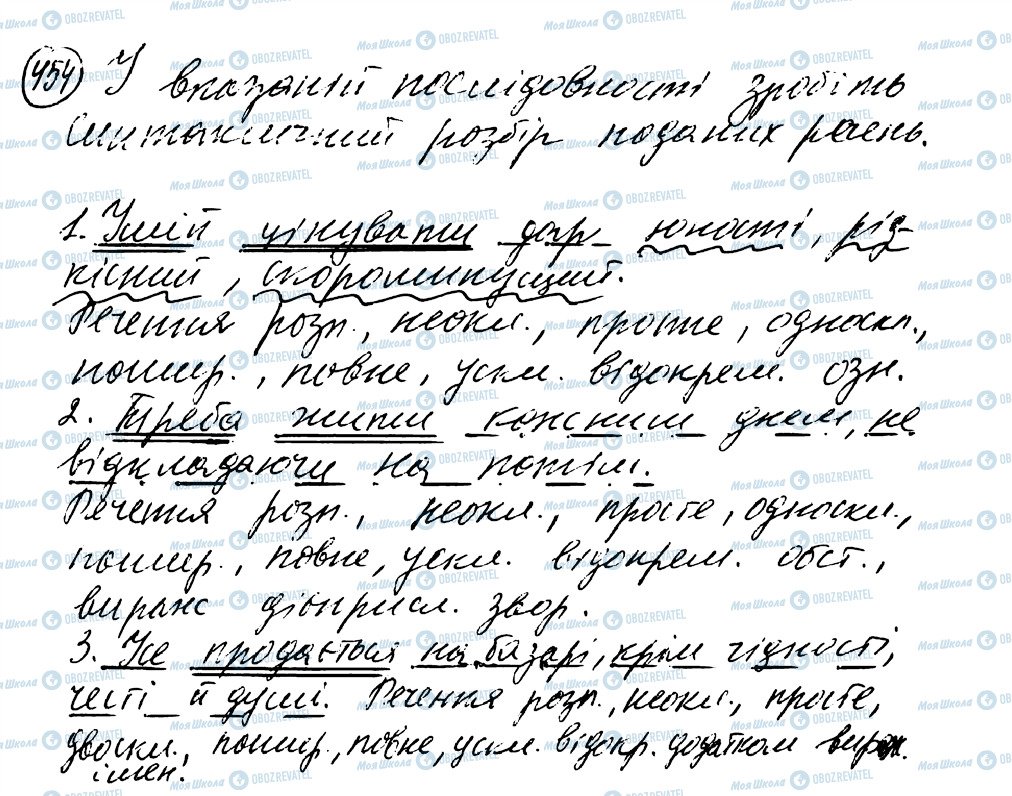 454 У вказаній послідовності зробіть
синтаксичний розбір поданих речень.
1. Умій цінувати дар юності, рід-
кісний, скороминущий.
Речення розп., неокл., просте, односкл.,
пошир., повне, ускл. відокрем. озн.
2. Треба жити кожним днем, не
відкладаючи на потім.
Речення розп., неокл., просте, односкл.,
пошир., повне, ускл. відокрем. обст.,
вираж дієприсл. звор.
3. Усе продається на базарі, крім гідності,
честі й душі. Речення розп., неокл., просте,
двоскл., пошир., повне, ускл. відокр. додатком вираж.
імен.